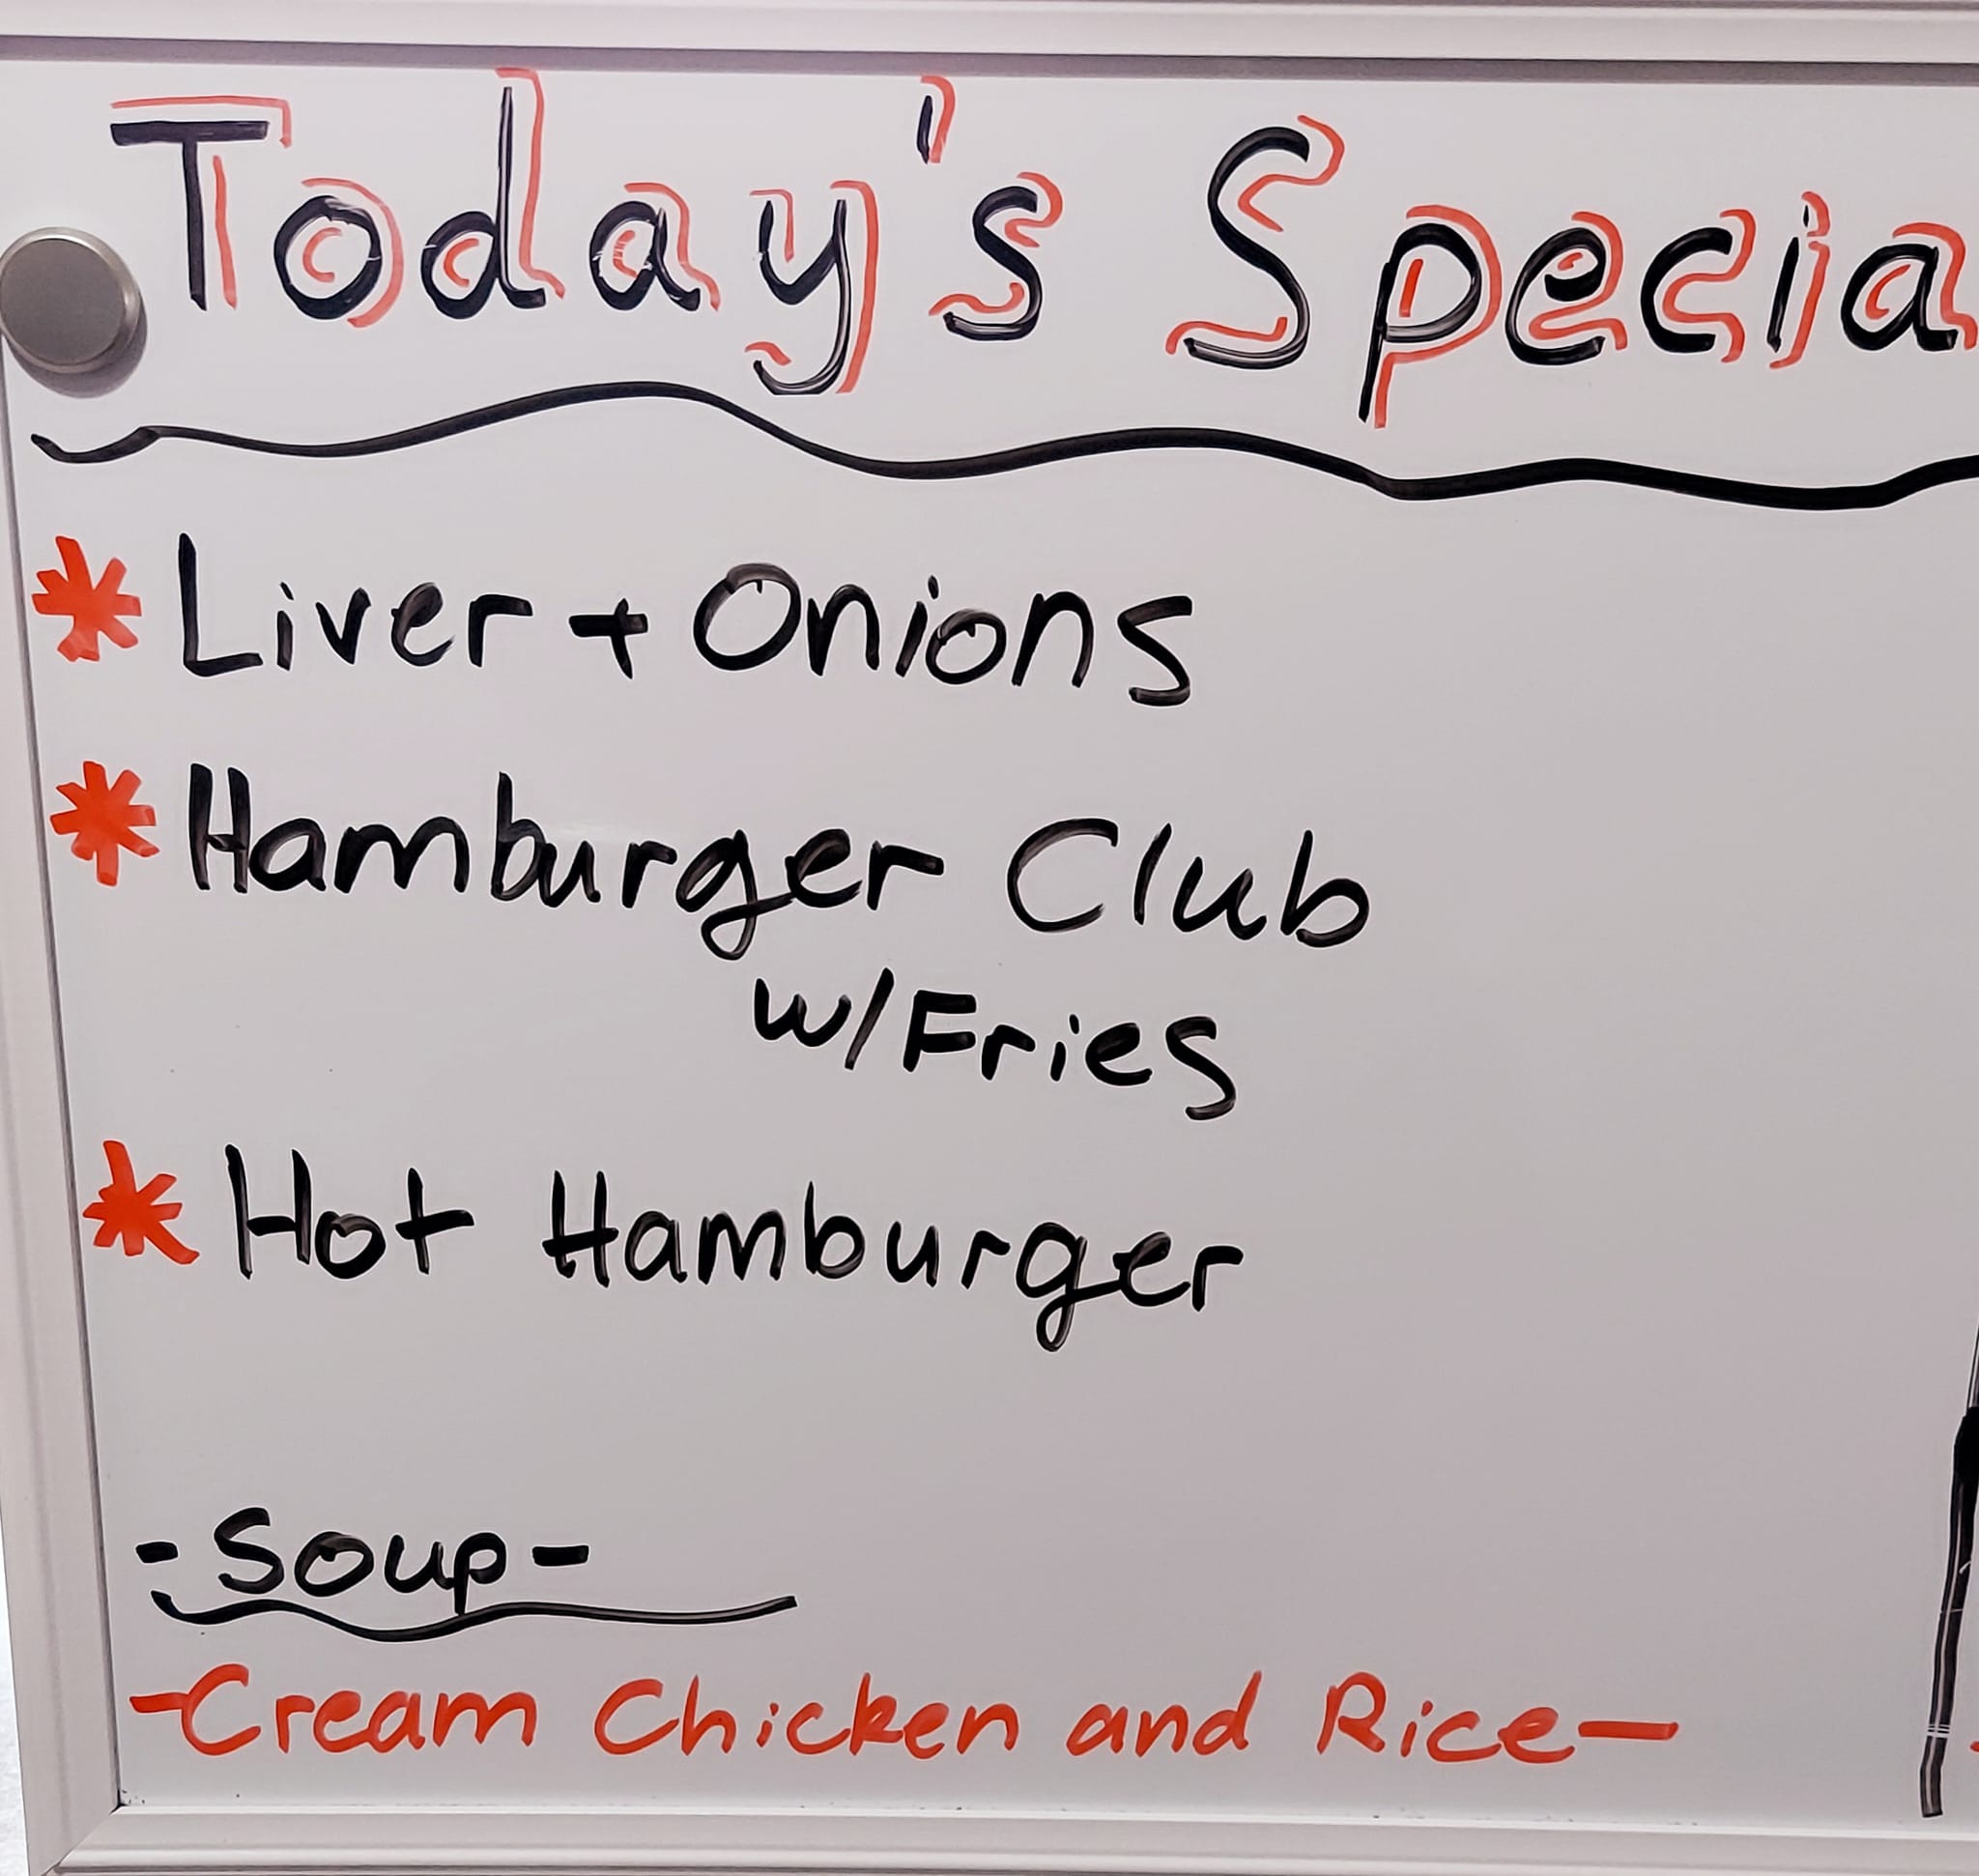 Today's Specia
* Liver + Onions
* Hamburger Club
w/Fries
* Hot Hamburger
-Soup-
-Cream Chicken and Rice-